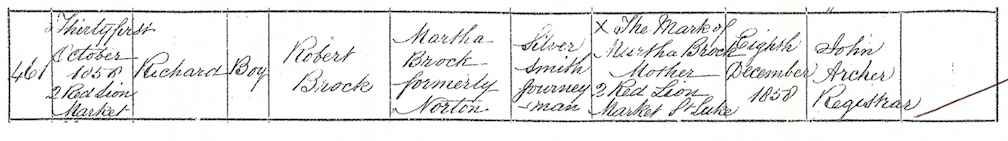 461
Thirty first
October
1858
2 Red Lion
Market
Richard
Boy
Robert
Brock
Martha
Brock
formerly
Norton
Silver
Smith
Journey
-man
X The Mark of
Martha Brock
Mother
2 Red Lion
Market St Luke
Eighth
December
1858
John
Archer
Registrar